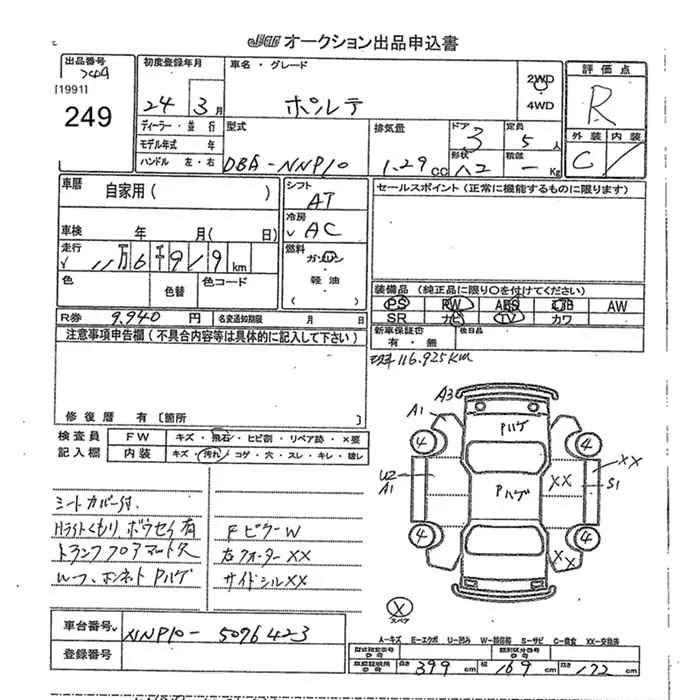 オークション出品申込書
出品番号
[1991]
249
初度登録年月
24 3月
車名・グレード
ポルテ
2WD
4WD
評価点
R
ディーラー・並行
モデル年式 年
ハンドル 左・右
型式
DBA-NNP10
排気量
1.29cc
ドア
3
形状
ハ2
定員
5人
積載
- Kg
外装 内装
C
車歴
自家用( )
車検 年 月( 日)
走行
11万6千919km
色
色替
色コード
シフト
AT
冷房
AC
燃料
ガソリン
軽油
セールスポイント(正常に機能するものに限ります)
装備品(純正品に限り○を付けてください)
PS PW ABS AW
SR ナビ TV カワ
新車保証書
有・無
後日品
R券 9.940円
名変通知期限 月 日
注意事項申告欄(不具合内容等は具体的に記入して下さい)
116.925Km
修復歴 有[箇所 ]
検査員
記入欄
FW キズ・飛石・ヒビ割・リペア跡・×要
内装 キズ・汚れ・コゲ・穴・スレ・キレ・破レ
シートカバー付.
Hライトくもり、ボウセイ有
トランクフロアマット欠
ルーフ、ボンネットPハゲ
FピラーW
右クォーターXX
サイドシルXX
A3
A1
Pハゲ
4
4
U2
A1
Pハゲ
XX
XX
S1
4
4
XX
X
スペア
A-キズ E-エクボ U-凹み W-補修跡 S-サビ C-腐食 XX-交換済
車台番号
NNP10-5096423
登録番号
長さ 399cm 幅 169cm 高さ 172cm